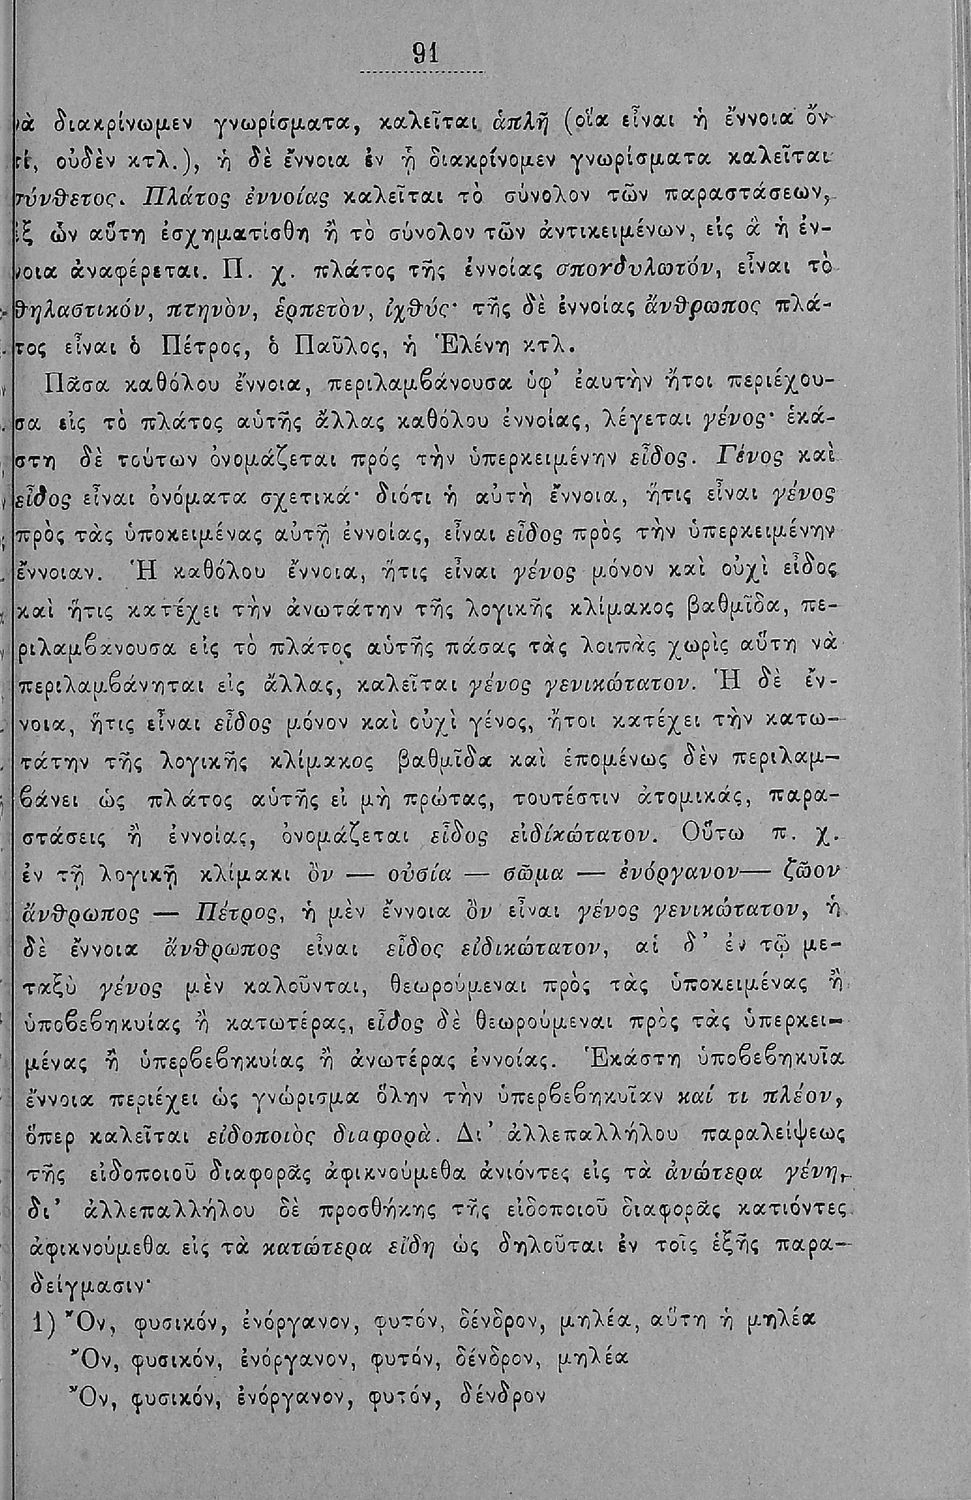 91
νὰ διακρίνωμεν γνωρίσματα, καλεῖται ἁπλῆ (οἵα εἶναι ἡ ἔννοια ὄν
τί, οὐδὲν κτλ.), ἡ δὲ ἔννοια ἐν ᾗ διακρίνομεν γνωρίσματα καλεῖται
σύνθετος. Πλάτος ἐννοίας καλεῖται τὸ σύνολον τῶν παραστάσεων,
ἐξ ὧν αὕτη ἐσχηματίσθη ἢ τὸ σύνολον τῶν ἀντικειμένων, εἰς ἃ ἡ ἔν-
νοια ἀναφέρεται. Π. χ. πλάτος τῆς ἐννοίας σπονδυλωτόν, εἶναι τὸ
θηλαστικόν, πτηνὸν, ἑρπετὸν, ἰχθύς· τῆς δὲ ἐννοίας ἄνθρωπος πλά-
τος εἶναι ὁ Πέτρος, ὁ Παῦλος, ἡ Ἑλένη κτλ.
Πᾶσα καθόλου ἔννοια, περιλαμβάνουσα ὑφ' ἑαυτὴν ἤτοι περιέχου-
σα εἰς τὸ πλάτος αὐτῆς ἄλλας καθόλου ἐννοίας, λέγεται γένος· ἑκά-
στη δὲ τούτων ὀνομάζεται πρός τὴν ὑπερκειμένην εἶδος. Γένος καὶ
εἶδος εἶναι ὀνόματα σχετικά· διότι ἡ αὐτὴ ἔννοια, ἥτις εἶναι γένος
πρὸς τὰς ὑποκειμένας αὐτῇ ἐννοίας, εἶναι εἶδος πρὸς τὴν ὑπερκειμένην
ἔννοιαν. Ἡ καθόλου ἔννοια, ἥτις εἶναι γένος μόνον καὶ οὐχὶ εἶδος
καὶ ἥτις κατέχει τὴν ἀνωτάτην τῆς λογικῆς κλίμακος βαθμῖδα, πε-
ριλαμβάνουσα εἰς τὸ πλάτος αὐτῆς πάσας τὰς λοιπὰς χωρὶς αὕτη νὰ
περιλαμβάνηται εἰς ἄλλας, καλεῖται γένος γενικώτατον. Ἡ δὲ ἔν-
νοια, ἥτις εἶναι εἶδος μόνον καὶ οὐχὶ γένος, ἤτοι κατέχει τὴν κατω-
τάτην τῆς λογικῆς κλίμακος βαθμῖδα καὶ ἑπομένως δὲν περιλαμ-
βάνει ὡς πλάτος αὐτῆς εἰ μὴ πρώτας, τουτέστιν ἀτομικάς, παρα-
στάσεις ἢ ἐννοίας, ὀνομάζεται εἶδος εἰδίκώτατον. Οὕτω π. χ.
ἐν τῇ λογικῇ κλίμακι ὂν — οὐσία — σῶμα — ἐνόργανον— ζῶον
ἄνθρωπος — Πέτρος, ἡ μὲν ἔννοια ὂν εἶναι γένος γενικώτατον, ἡ
δὲ ἔννοια ἄνθρωπος εἶναι εἶδος εἰδικώτατον, αἱ δ' ἐν τῷ με-
ταξὺ γένος μὲν καλοῦνται, θεωρούμεναι πρὸς τὰς ὑποκειμένας ἢ
ὑποβεβηκυίας ἢ κατωτέρας, εἶδος δὲ θεωρούμεναι πρὸς τὰς ὑπερκει-
μένας ἢ ὑπερβεβηκυίας ἢ ἀνωτέρας ἐννοίας. Ἑκάστη ὑποβεβηκυῖα
ἔννοια περιέχει ὡς γνώρισμα ὅλην τὴν ὑπερβεβηκυῖαν καί τι πλέον,
ὅπερ καλεῖται εἰδοποιὸς διαφορὰ. Δι' ἀλλεπαλλήλου παραλείψεως
τῆς εἰδοποιοῦ διαφορᾶς ἀφικνούμεθα ἀνιόντες εἰς τὰ ἀνώτερα γένη,
δι' ἀλλεπαλλήλου δὲ προσθήκης τῆς εἰδοποιοῦ διαφορᾶς κατιόντες
ἀφικνούμεθα εἰς τὰ κατώτερα εἴδη ὡς δηλοῦται ἐν τοῖς ἑξῆς παρα-
δείγμασιν·
1) Ὂν, φυσικόν, ἐνόργανον, φυτόν, δένδρον, μηλέα, αὕτη ἡ μηλέα
Ὂν, φυσικόν, ἐνόργανον, φυτόν, δένδρον, μηλέα
Ὂν, φυσικόν, ἐνόργανον, φυτόν, δένδρον